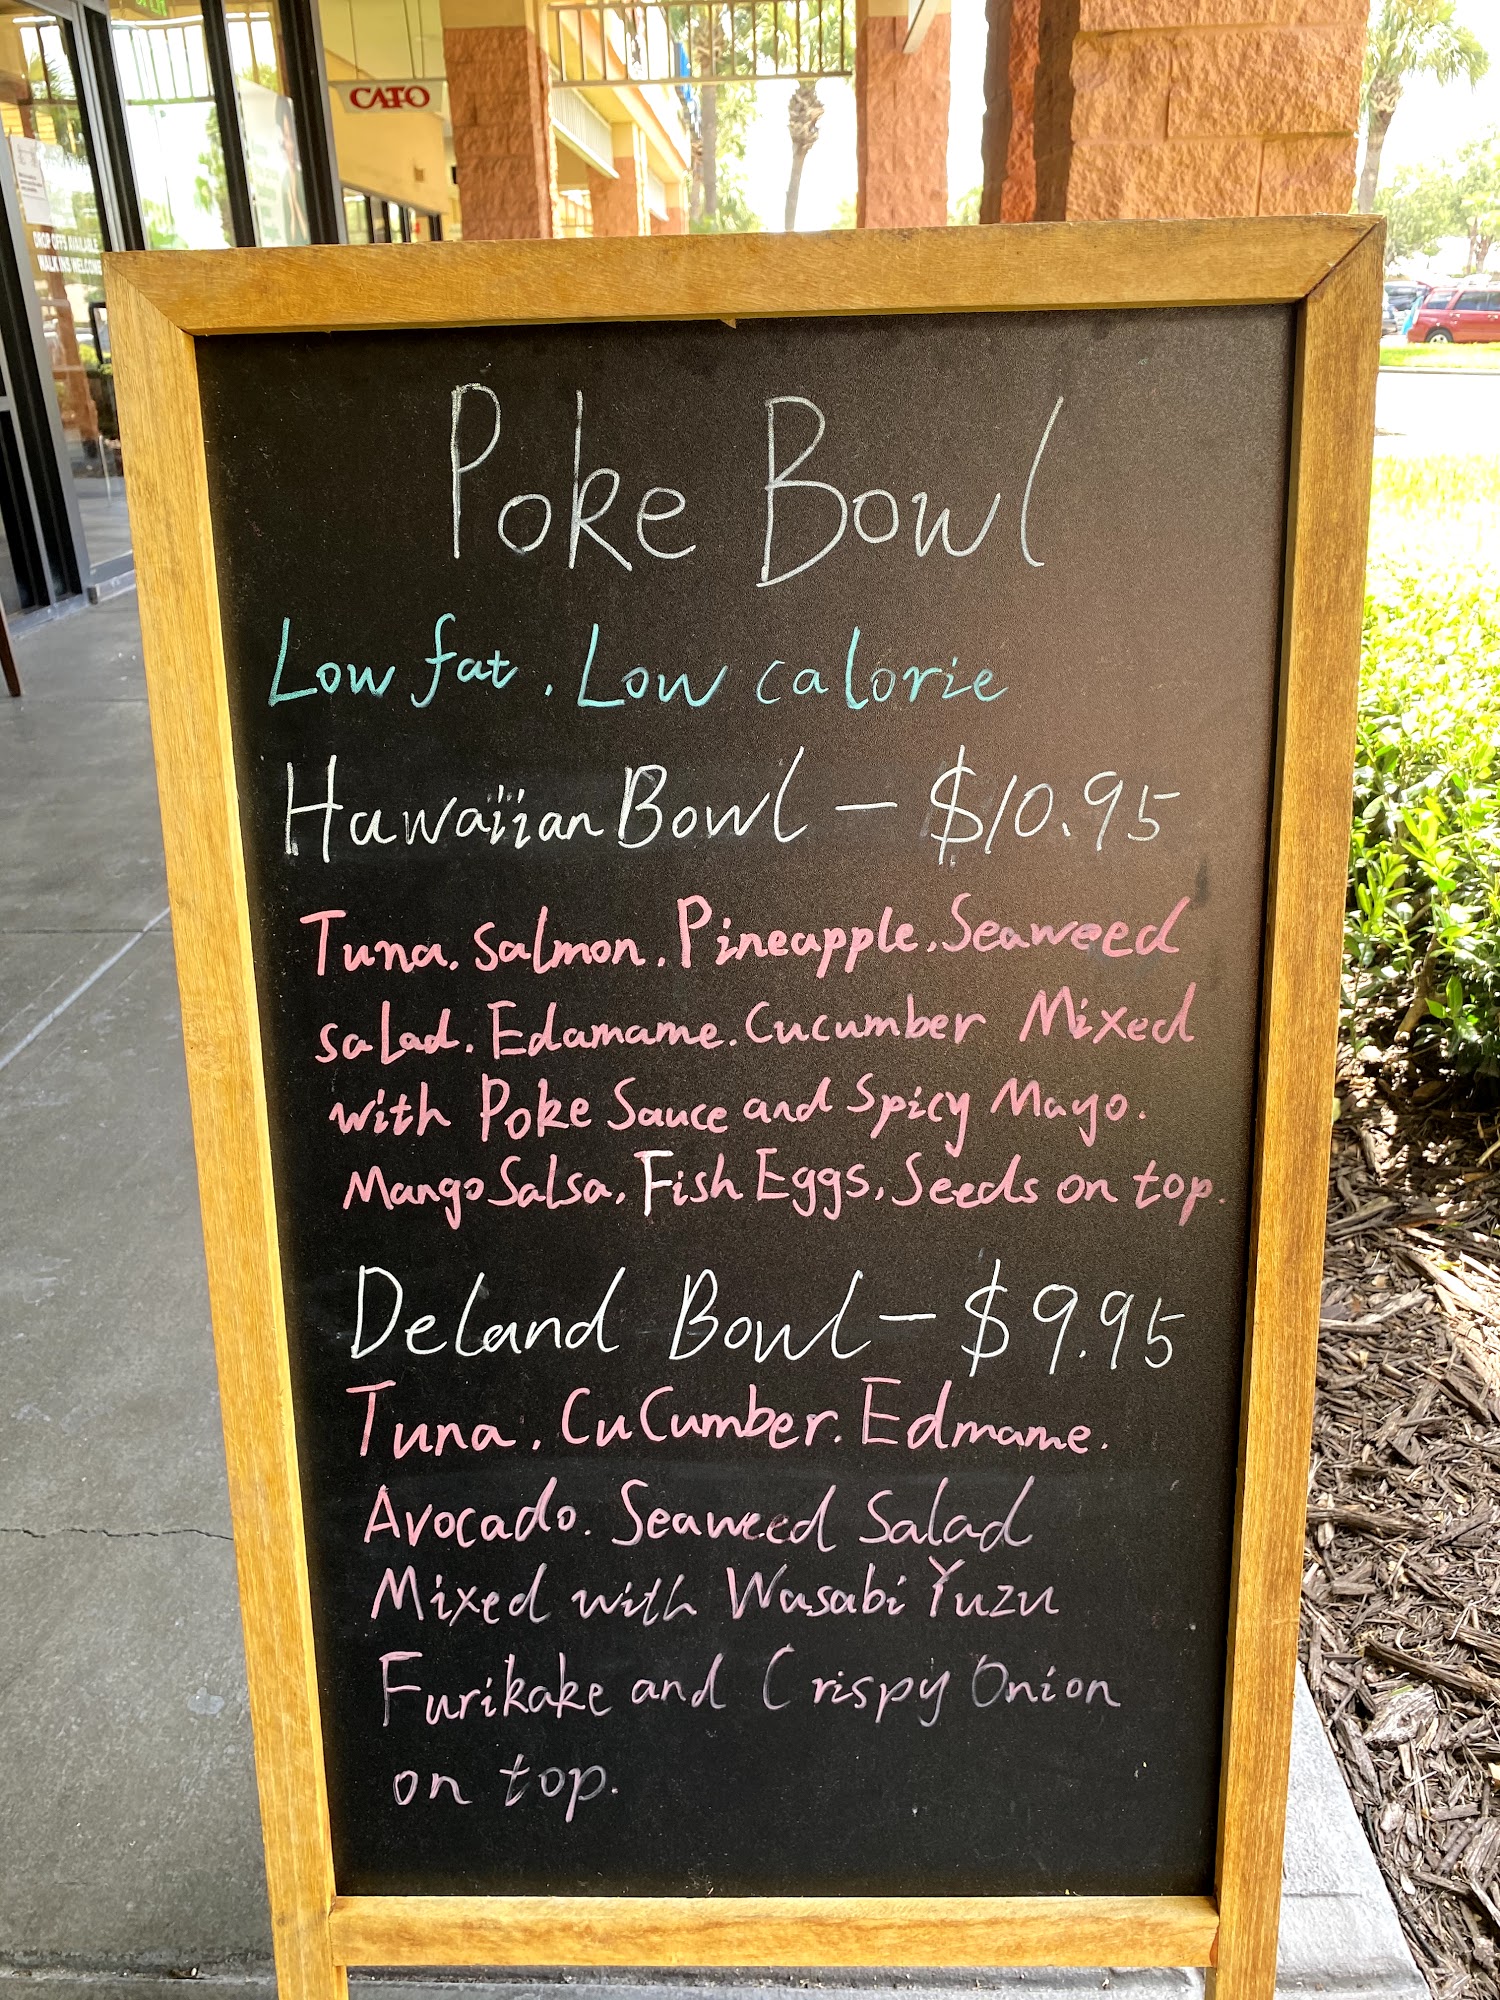 CATO
DROP OFFS AVAILABLE
WALK INS WELCOME
Poke Bowl
Low fat. Low calorie
Hawaiian Bowl - $10.95
Tuna. Salmon. Pineapple. Seaweed
salad. Edamame. Cucumber Mixed
with Poke Sauce and Spicy Mayo.
Mango Salsa. Fish Eggs. Seeds on top.
Deland Bowl - $9.95
Tuna. CuCumber. Edmame.
Avocado. Seaweed Salad
Mixed with Wasabi Yuzu
Furikake and Crispy Onion
on top.